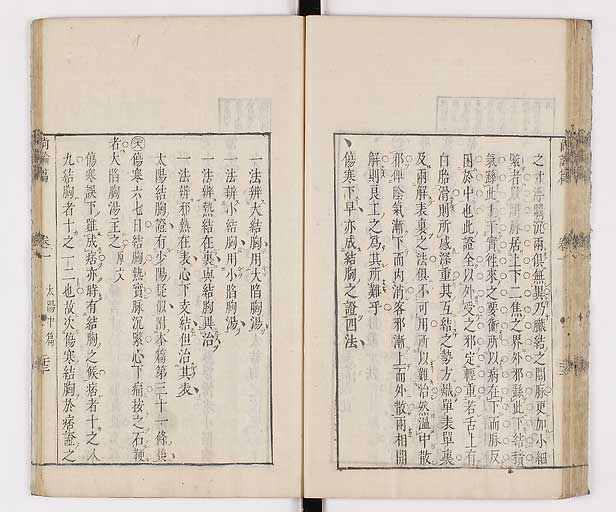 之寸浮關沉兩俱無異乃臟結之關脉更加小細
緊者以關脉居上下二焦之界外邪繇此下結積
氣繇此上干實往來之要衝所以病在下而脉反
困於中也此證全以外受之邪定輕重若舌上有
白胎滑則所感深重其互結之勢方熾單表單裏
及兩解表裏之法俱不可用所以難治然溫中散
邪俾陰氣漸下而内消客邪漸上而外散兩相開
解則良工之爲其所難乎
傷寒下早亦成結胸之證四法
一法辨大結胸用大陷胸湯
一法辨小結胸用小陷胸湯
一法辨熱結在裏與結胸異治
一法辨邪熱在表心下支結但治其表
太陽結胸證有少陽疑似附本篇第三十一條後
傷寒六七日結胸熱實脉沉緊心下痛按之石鞕
者大陷胸湯主之原文
傷寒誤下雖成痞亦時有結胸之候痞者十之八
九結胸者十之一二也故次傷寒結胸於痞證之
尚論篇 卷一 太陽中篇